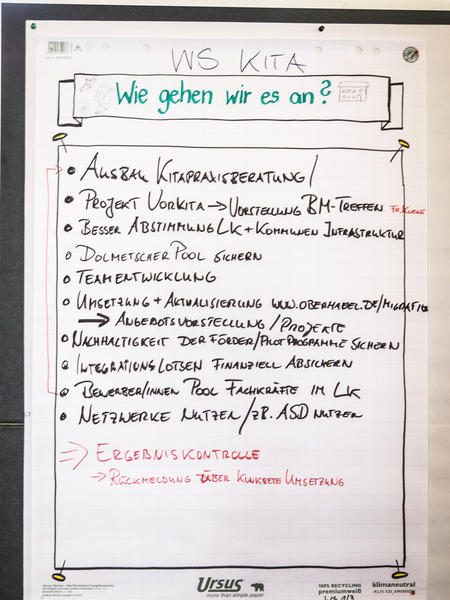 WS KITA
Wie gehen wir es an?
• AUSBAU KITAPRAXISBERATUNG /
• PROJEKT VORKITA → VORSTELLUNG BM-TREFFEN
• BESSER ABSTIMMUNG LK + KOMMUNEN INFRASTRUKTUR
• DOLMETSCHER POOL SICHERN
• TEAMENTWICKLUNG
• UMSETZUNG + AKTUALISIERUNG WWW.OBERHAVEL.DE/MIGRATION
→ ANGEBOTSVORSTELLUNG / PROJEKTE
• NACHHALTIGKEIT DER FÖRDER/PILOTPROGRAMME SICHERN
• INTEGRATIONSLOTSEN FINANZIELL ABSICHERN
• BEWERBER/INNEN POOL FACHKRÄFTE IM LK
• NETZWERKE NUTZEN / ZB. ASD NUTZEN
⇒ ERGEBNISKONTROLLE
→ RÜCKMELDUNG ÜBER KONKRETE UMSETZUNG
Ursus
more than simple paper
100% RECYCLING
premiumweiß
klimaneutral